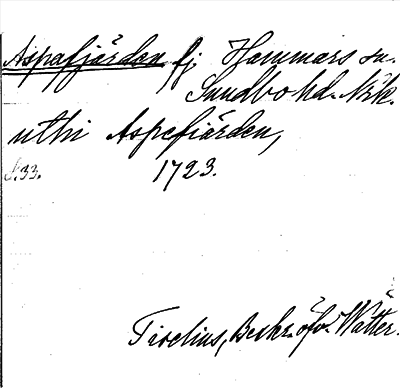 Aspafjärden fj. Hammars sn.
Sundbo hd. Nrk.
uthi Aspefiärden,
s. 33. 1723.
Tiselius, Beskr. öfv. Wätter.